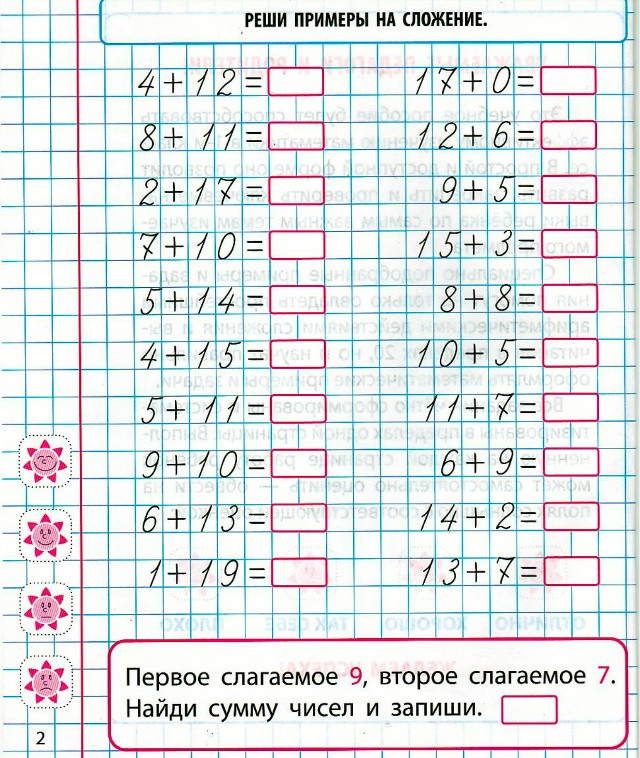 РЕШИ ПРИМЕРЫ НА СЛОЖЕНИЕ.
4+12= 17+0=
8+11= 12+6=
2+17= 9+5=
7+10= 15+3=
5+14= 8+8=
4+15= 10+5=
5+11= 11+7=
9+10= 6+9=
6+13= 14+2=
1+19= 13+7=
Первое слагаемое 9, второе слагаемое 7.
Найди сумму чисел и запиши.
2